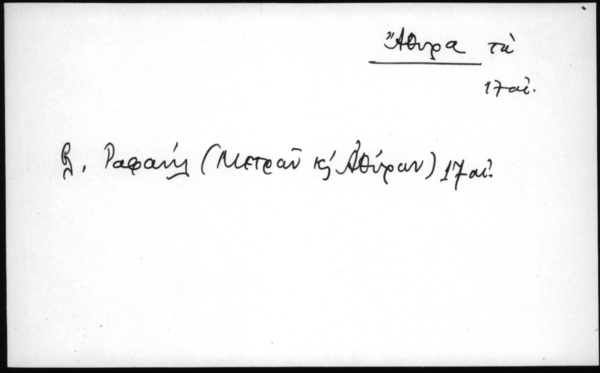 Ἄθυρα τὰ
17 αἰ.
βλ. Ραφαήλ (Μετρῶν κ̓ Ἀθύρων) 17 αἰ.